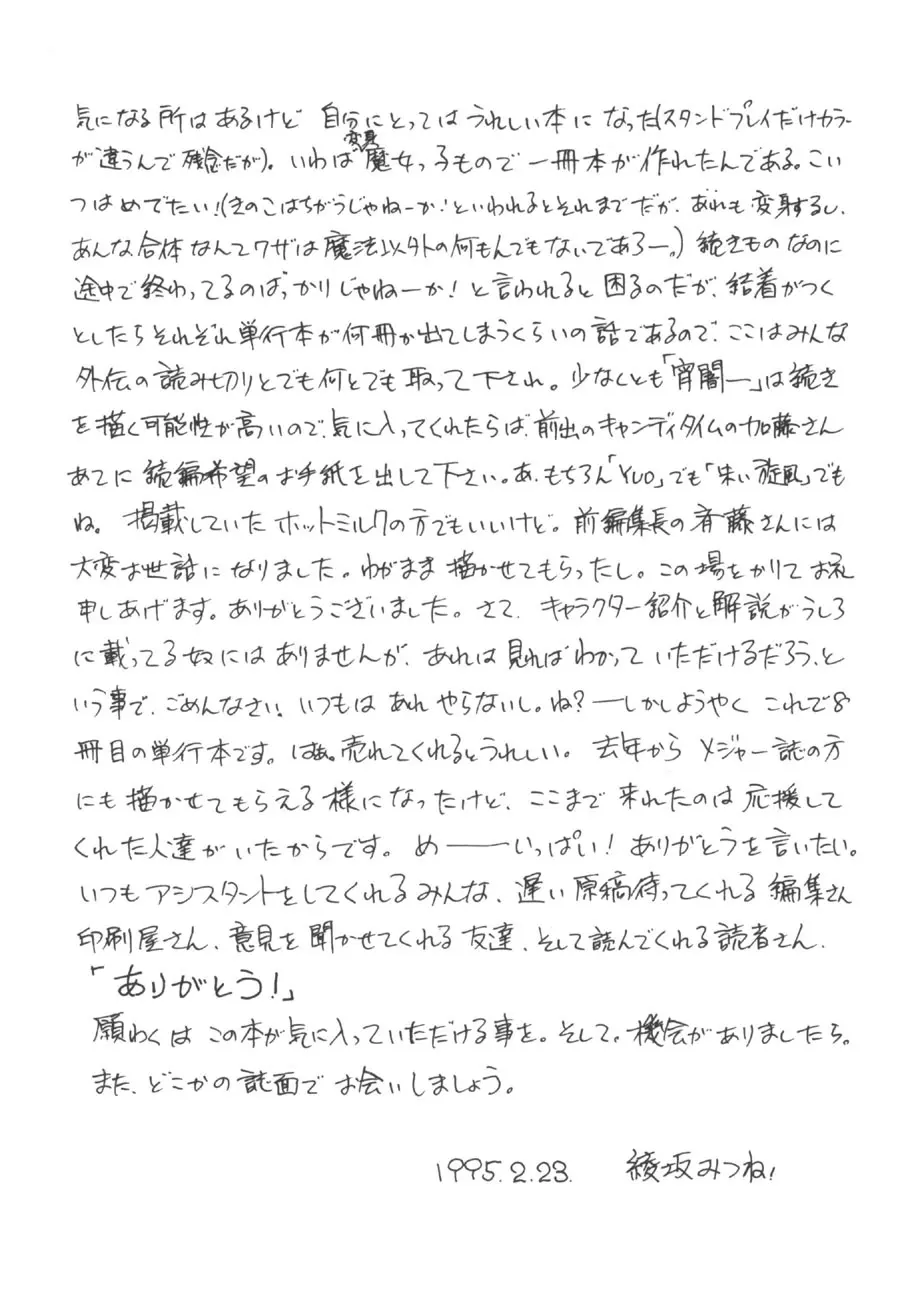 気になる所はあるけど 自分にとってはうれしい本になった(スタンドプレイだけカラー
が違うんで残念だが)。いわば変身魔女っ子もので一冊本が作れたんである。こい
つはめでたい!(きのこはちがうじゃねーか!といわれるとそれまでだが、あれも変身するし、
あんな合体なんてワザは魔法以外の何もんでもないであろー。)続きものなのに
途中で終わってるのばっかりじゃねーか!と言われると困るのだが、結着がつく
としたらそれぞれ単行本が何冊か出てしまうくらいの話であるので、ここはみんな
外伝の読み切りとでも何とでも取って下され。少なくとも「宵闇―」は続き
を描く可能性が高いので、気に入ってくれたらば、前出のキャンディタイムの加藤さん
あてに続編希望のお手紙を出して下さい。あ、もちろん「YUO」でも「朱い旋風」でも
ね。掲載していたホットミルクの方でもいいけど。前編集長の斉藤さんには
大変お世話になりました。わがまま描かせてもらったし。この場をかりてお礼
申しあげます。ありがとうございました。さて、キャラクター紹介と解説がうしろ
に載ってる奴にはありませんが、あれは見ればわかっていただけるだろう、と
いう事で、ごめんなさい。いつもはあれやらないし。ね?―しかしようやくこれで8
冊目の単行本です。はぁ。売れてくれるとうれしい。去年からメジャー誌の方
にも描かせてもらえる様になったけど、ここまで来れたのは応援して
くれた人達がいたからです。め――いっぱい!ありがとうを言いたい。
いつもアシスタントをしてくれるみんな、遅い原稿待ってくれる編集さん
印刷屋さん、意見を聞かせてくれる友達、そして読んでくれる読者さん、
「ありがとう!」
願わくはこの本が気に入っていただける事を。そして。機会がありましたら。
また、どこかの誌面でお会いしましょう。
1995.2.23. 綾坂みつね!